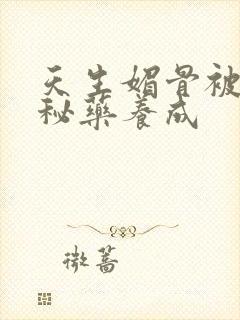 天生媚骨被
秘藥養成
微薔